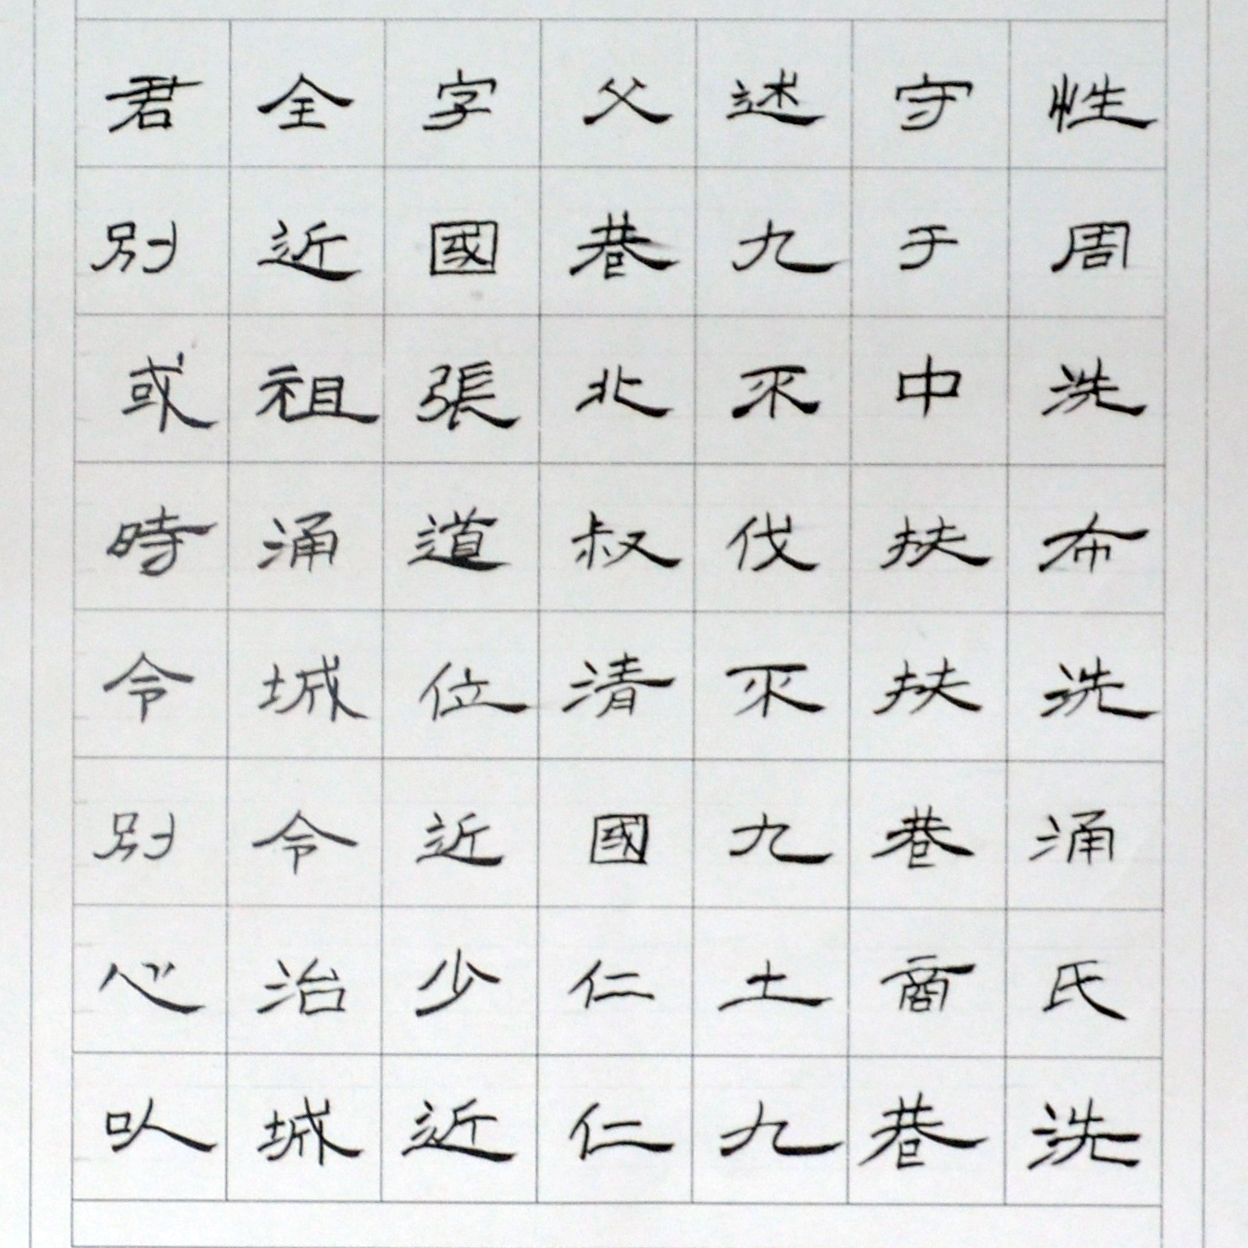 性周洗布洗涌氏洗
守于中扶扶巷商巷
述九伐九土九
父巷北叔清國仁仁
字國張道位近少近
全近祖涌城令治城
君別或時令別心以